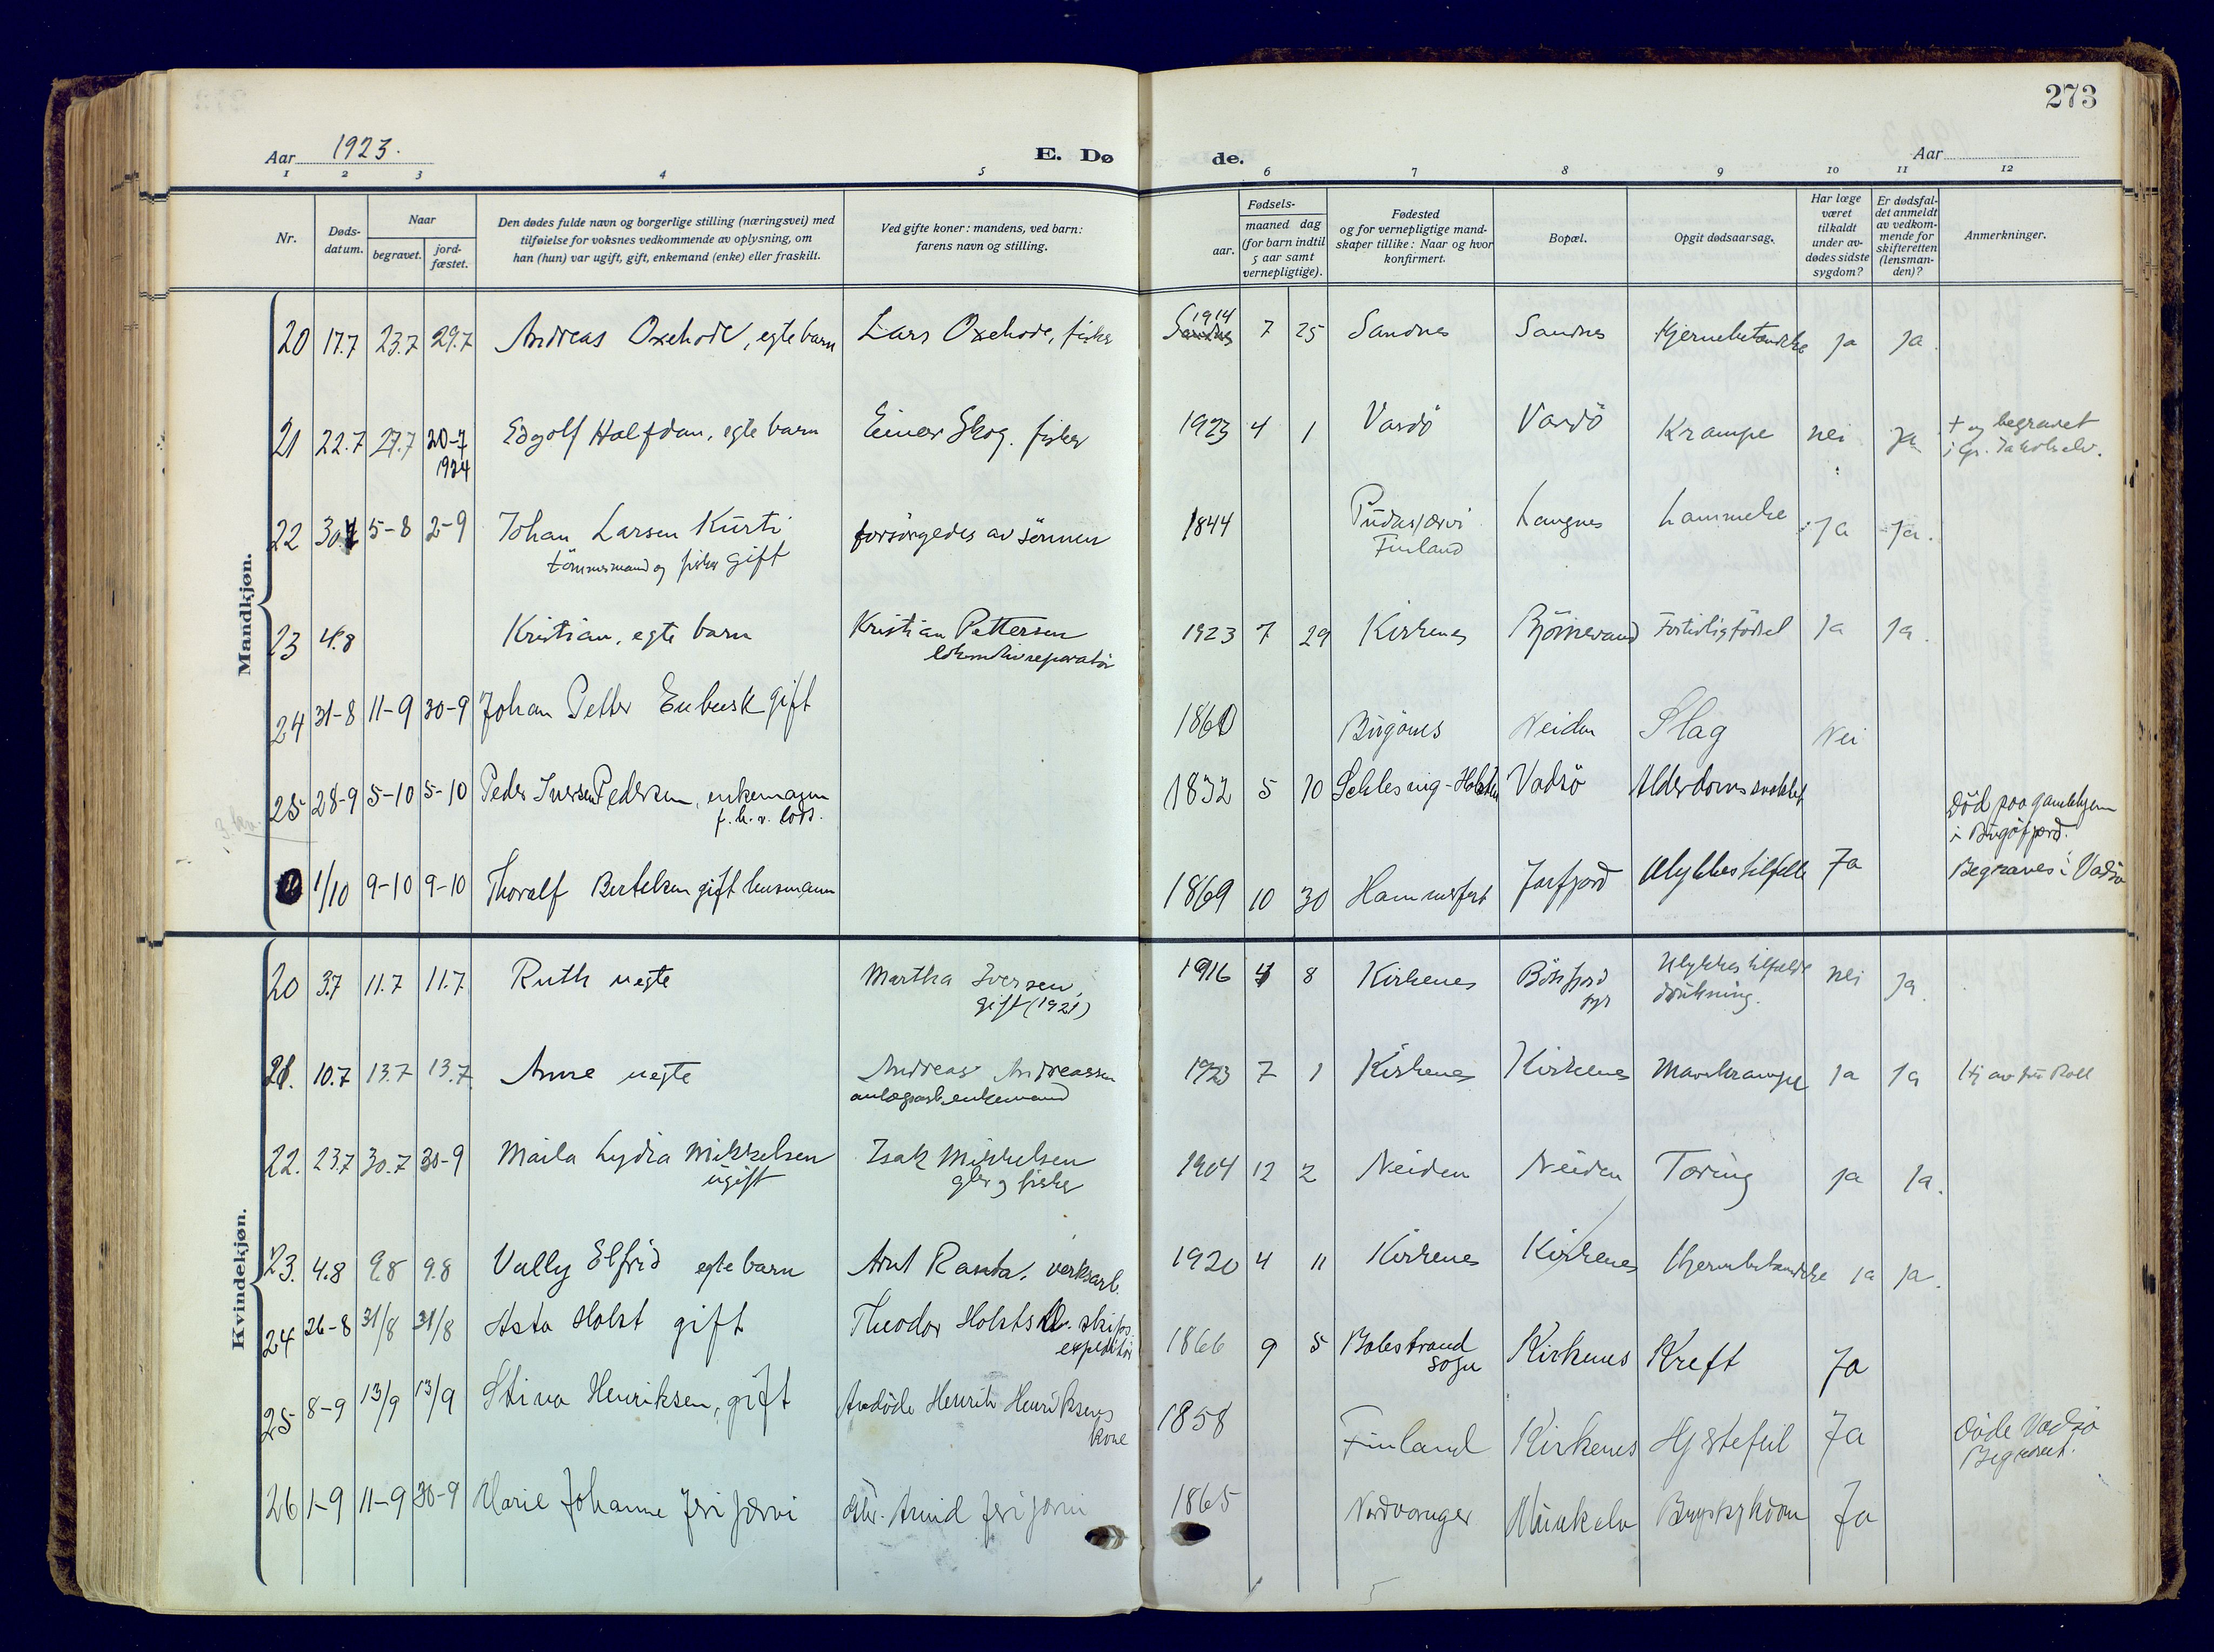 273
Aar 1923.
E. Dø
de.
Aar
1 2 3 4 5 6 7 8 9 10 11 12
Nr.
Døds-
datum.
Naar
begravet.
jord-
fæstet.
Den dødes fulde navn og borgerlige stilling (næringsvei) med
tilføielse for voksnes vedkommende av oplysning, om
han (hun) var ugift, gift, enkemand (enke) eller fraskilt.
Ved gifte koner: mandens, ved barn:
farens navn og stilling.
Fødsels-
aar.
maaned dag
(for barn indtil
5 aar samt
vernepligtige).
Fødested
og for vernepligtige mand-
skaper tillike: Naar og hvor
konfirmert.
Bopæl.
Opgit dødsaarsag.
Har læge
været
tilkaldt
under av-
dødes sidste
sygdom?
Er dødsfal-
det anmeldt
av vedkom-
mende for
skifteretten
(lensman-
den)?
Anmerkninger.
Mandkjøn.
20 17.7 23.7 29.7 Andreas Oxehode, egte barn Lars Oxehode, fisker 1914 7 25 Sandnes Sandnes Hjernebetændelse ja ja.
21 22.7 27.7 20-7 Edgolf Halfdan, egte barn Einar Skog. fisker 1923 4 1 Vardö Vardö Krampe nei ja + og begravet
1924 i Gr. Jakobselv.
22 30.7 5-8 2-9 Johan Larsen Kurti forsörgedes av sönnen 1844 Pudasjærvi Langnes Lammelse ja ja.
tömmermand og fisker gift Finland
23 4.8 Kristian, egte barn Kristian Pettersen 1923 7 29 Kirkenes Björnevand Fortidlig födsel ja ja.
lokomotivreparatör
24 31-8 11-9 30-9 Johan Petter Enbusk gift 1860 Bugönes Neiden Slag Nei
25 28-9 5-10 5-10 Peder Iversen Pedersen, enkemann 1832 5 10 Schlesvig-Holsten Vadsö Alderdomssvakhet Död paa gamlehjem
f. h. v. lods. i Bugöfjord.
1/10 9-10 9-10 Thoralf Bertelsen gift husmann 1869 10 30 Hammerfest Jarfjord Ulykkestilfelle Ja Begraves i Vadsö
Kvindekjøn.
20 3.7 11.7 11.7 Ruth uegte Martha Iversen, 1916 4 8 Kirkenes Bökfjord Ulykkestilfælde nei ja.
gift (1921) fyr drukning.
21. 10.7 13.7 13.7 Anne uegte Andreas Andreassen 1923 7 1 Kirkenes Kirkenes Mavekrampe ja ja Hj av Roll
anlægsarb. enkemand
22. 23.7 30.7 30-9 Maila Lydia Mikkelsen Isak Mikkelsen 1904 12 2 Neiden Neiden Tæring ja ja.
ugift gbr og fisker
23. 4.8 9.8 9.8 Vally Elfrid egte barn Arnt Ranta. verksarb. 1920 4 11 Kirkenes Kirkenes Hjernebetændelse ja ja.
24 26-8 31/8 31/8 Asta Holst gift Theodor Holsts skips 1866 9 5 Balestrand Kirkenes Kreft Ja
expeditör Sogn
25 8-9 13/9 13/9 Stina Henriksen, gift Avdöde Henrik Henriksens 1858 Finland Kirkenes Hjertefeil Ja Döde Vadsö
kone Begravet.
26 1-9 11-9 30-9 Marie Johanne Jerijærvi Gbr. Arvid Jerijærvi 1865 Nordvaranger Munkelv Brystsykdom Ja